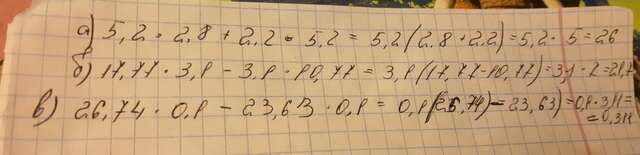 а) 5,2 · 2.8 + 2.2 · 5,2 = 5,2(2.8+2.2)=5,2· 5=26
б) 17,77 · 3,1 - 3,1 · 10,77 = 3,1(17,77-10,77)=3,1 · 7=21,7
в) 26,74 · 0,1 - 23,63 · 0,1 = 0,1(26,74)-23,63)=0,1·3,11=
=0,311